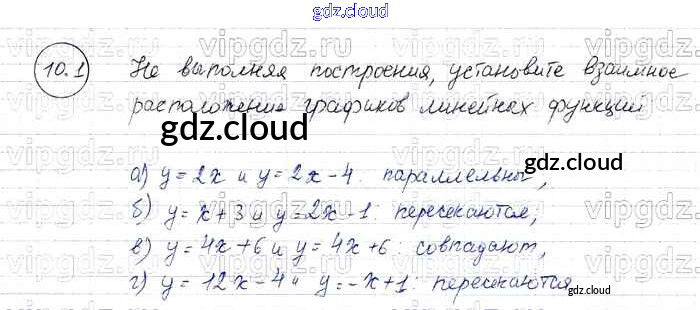 gdz.cloud
10.1 Не выполняя построения, установите взаимное
расположение графиков линейных функций
gdz.cloud
gdz.cloud
а) y = 2x и y = 2x - 4: параллельны,
б) y = x + 3 и y = 2x - 1: пересекаются,
в) y = 4x + 6 и y = 4x + 6: совпадают,
г) y = 12x - 4 и y = -x + 1: пересекаются
gdz.cloud